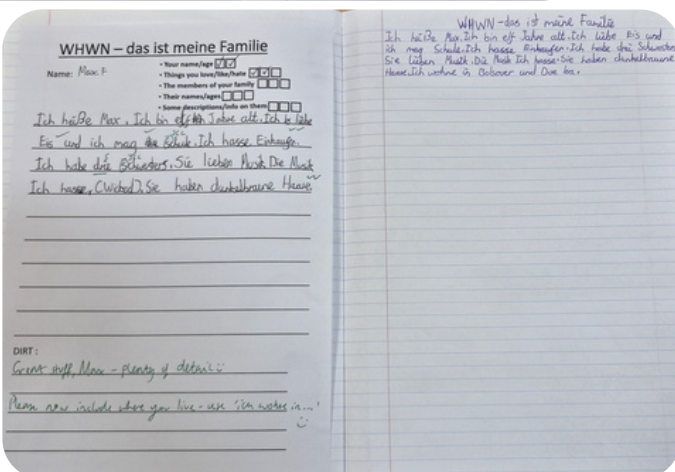 WHWN – das ist meine Familie
Name: Max. F
• Your name/age
• Things you love/like/hate
• The members of your family
• Their names/ages
• Some descriptions/info on them
Ich heiße Max. Ich bin elf Jahre alt. Ich liebe
Eis und ich mag Schule. Ich hasse Einkaufe.
Ich habe drie Schwesters. Sie lieben Musik. Die Musik
Ich hasse, (Wicked). Sie haben dunkelbraune Haare
DIRT:
Great stuff, Max – plenty of detail
Please now include where you live – use 'ich wohne in...'
WHWN - das ist meine Familie
Ich heiße Max. Ich bin elf Jahre alt. Ich liebe Eis und
ich mag Schule. Ich hasse Einkaufen. Ich habe drei Schwestern
Sie lieben Musik. Die Musik Ich hasse. Sie haben dunkelbraune
Haare. Ich wohne in Bolsover and